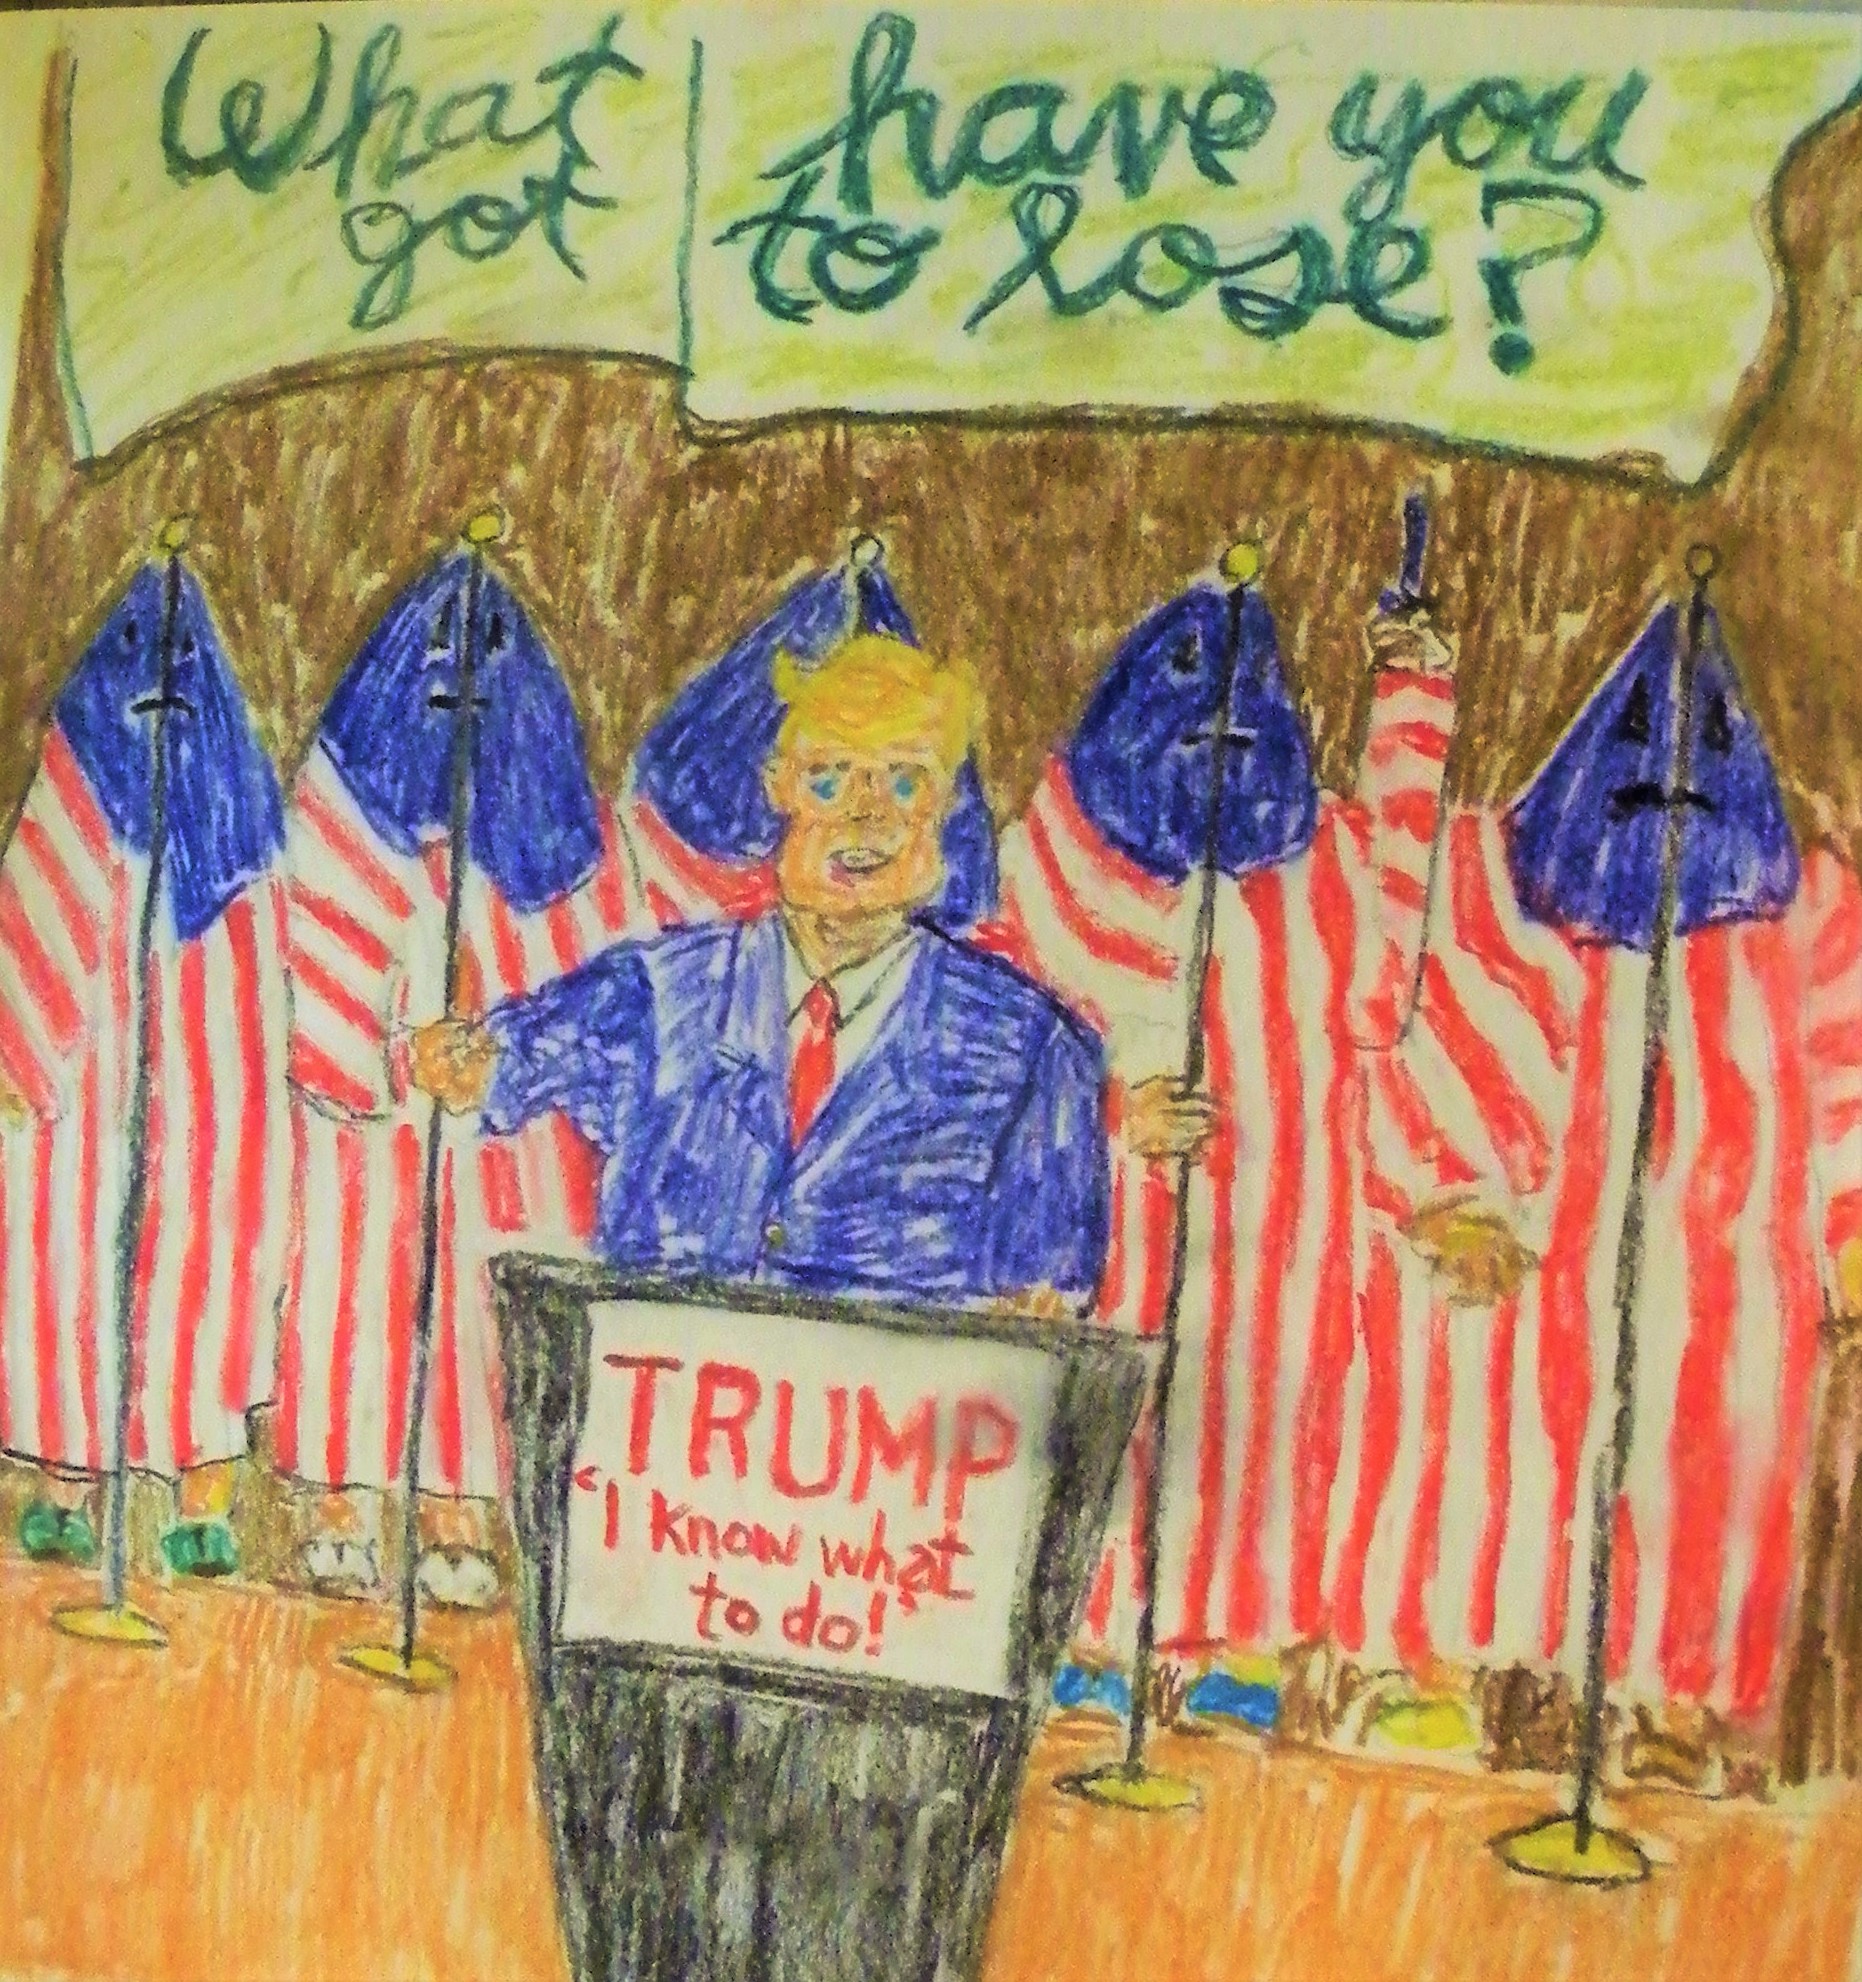 What have you
got to lose?
TRUMP
"I know what
to do!